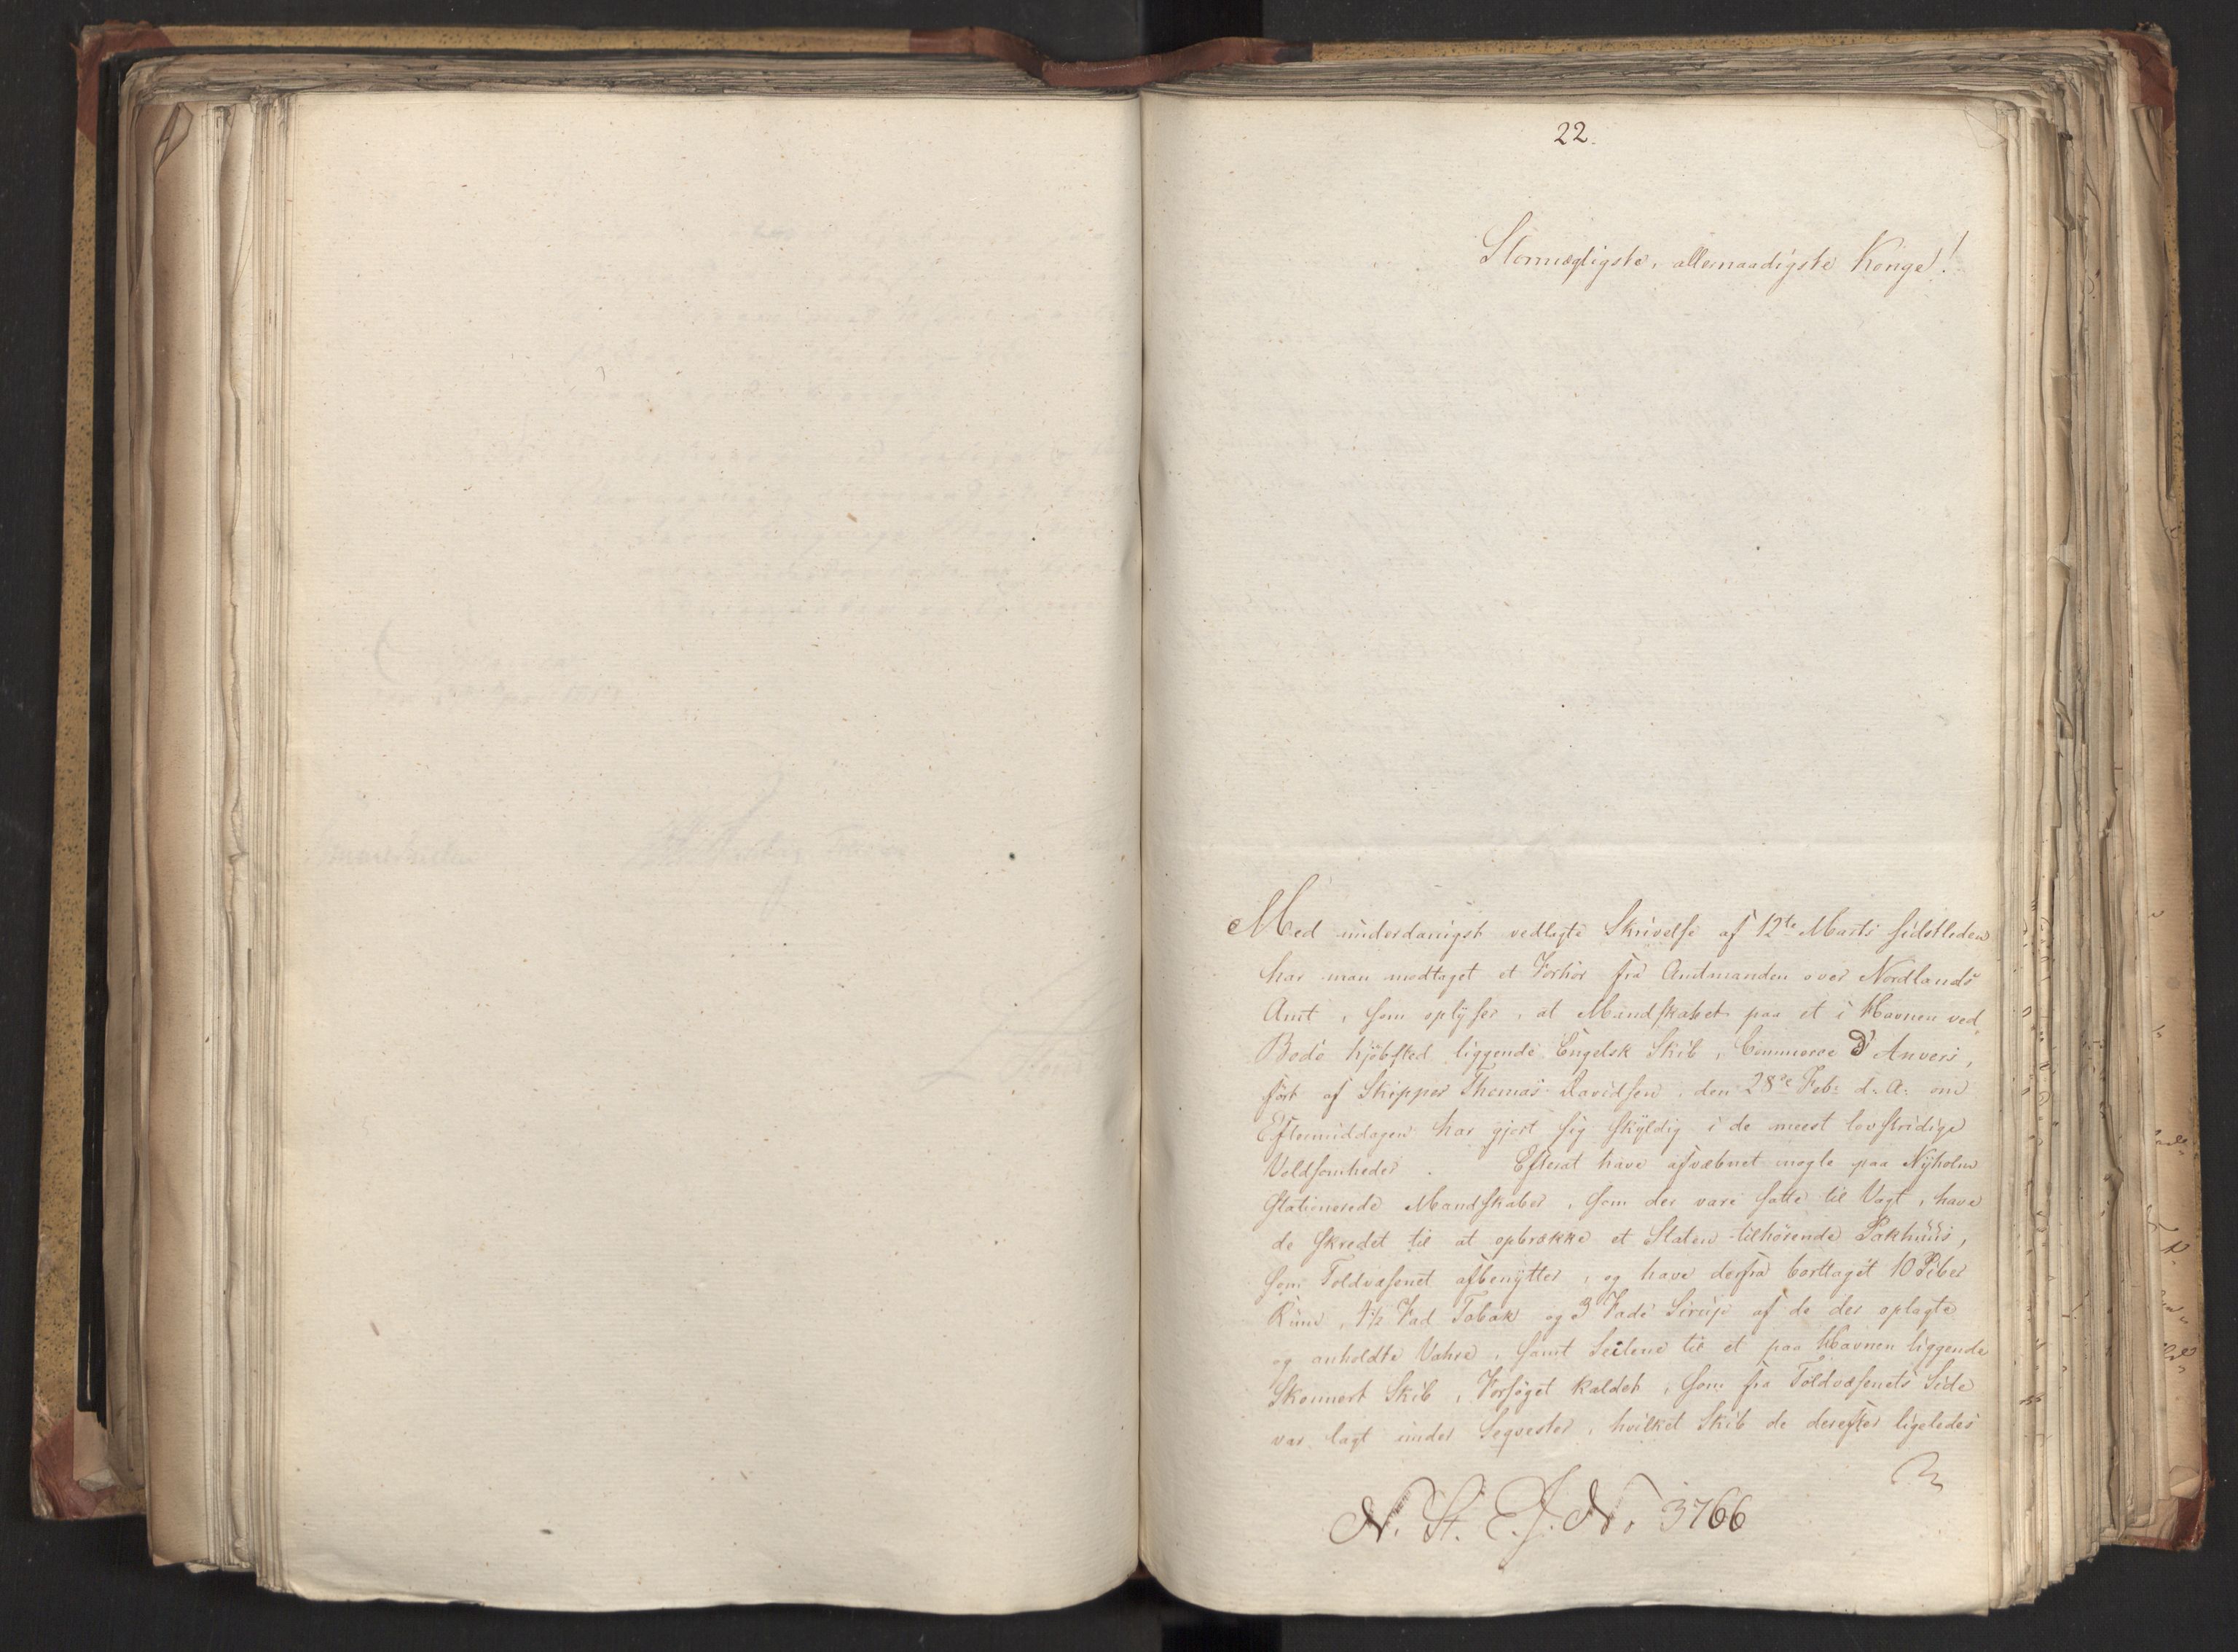 22.
Stormægtigste, allernaadigste Konge!
Med underdanigst vedlagte Skrivelse af 12te Marts sidstleden
har man modtaget et Forhör fra Amtmanden over Nordlands
Amt, som oplyser, at Mandskabet paa et i Havnen ved
Bodö Kjöbsted liggende Engelsk Skib, Commerce D'Anvers,
fört af Skipper Thomas Davidsen, den 28de Feb: d: A: om
Eftermiddagen har gjort sig skyldig i de meest lovstridige
Voldsomheder. Efterat have afvæbnet nogle paa Nyholm
stationerede Mandskaber, som der vare satte til Vagt, have
de skredet til at opbrække et Staten tilhörende Pakhuus,
som Toldvæsenet afbenytter, og have derfra borttaget 10 Piber
Rum, 4½ Fad Tobak og 3 Fade Sirup af de der oplagte
og anholdte Vahre, samt Seilene til et paa Havnen liggende
Skonnert Skib, Forsöget kaldet, som fra Toldvæsenets Side
var lagt under Seqvester, hvilket Skib de derefter ligeledes
N. St. E. J. N. 3766